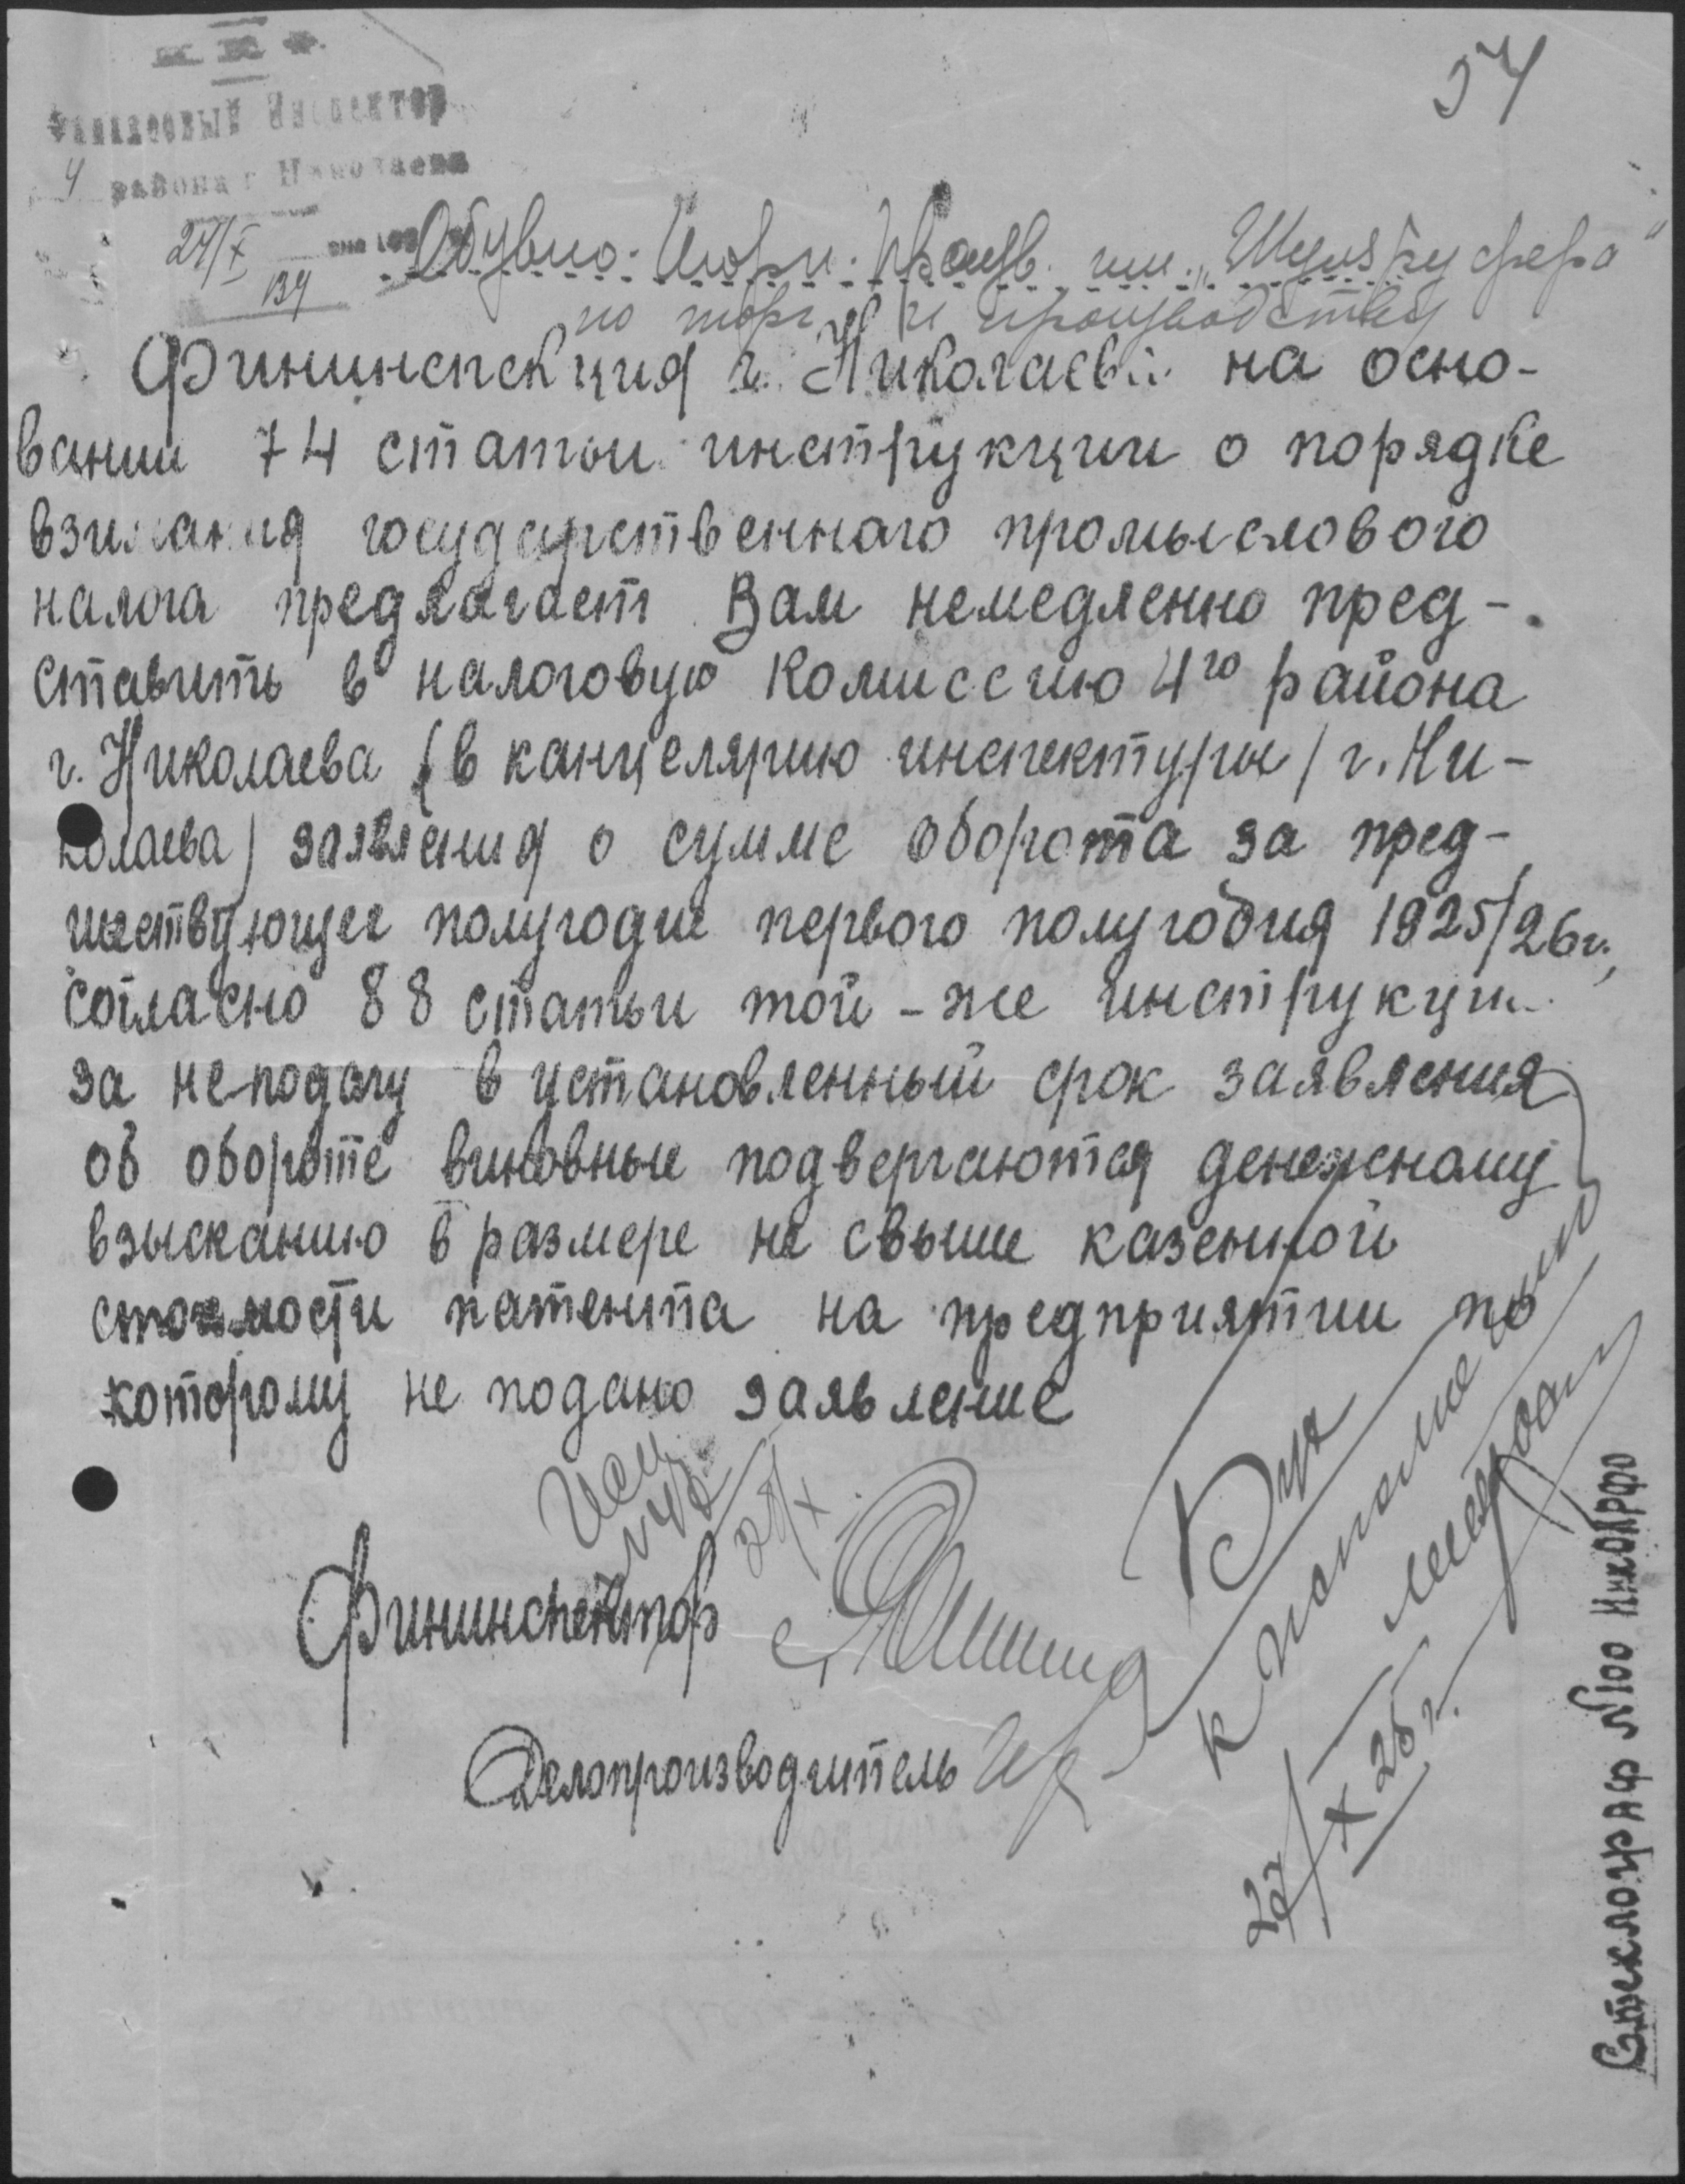 34
Финансовый Инспектор
4 района г. Николаева
27/X
134
Обувно-
по торг. и производству
Фининспекция г. Николаева на осно-
вании 74 статьи инструкции о порядке
взимания государственнаго промыслового
налога предлагает Вам немедленно пред-
ставить в налоговую комиссию 4го района
г. Николаева (в канцелярию инспектуры / г. Ни-
колаева) заявления о сумме оборота за пред-
шествующее полугодие первого полугодия 1925/26 г.,
согласно 88 статьи той-же инструкции
за неподачу в установленный срок заявления
об обороте виновные подвергаются денежному
взысканию в размере не свыше казенной
стоимости патента на предприятии по
которому не подано заявление
28/X
Фининспектор
Делопроизводитель
Бух
к исполнению
27/X 25 г.
Стеклограф №100 НикОкРФО